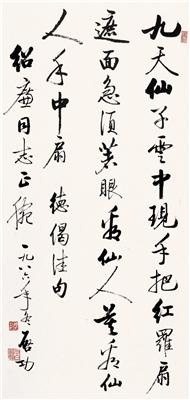 九天仙子雲中現手把紅羅扇
遮面急須著眼看仙人莫看仙
人手中扇 德偈佳句
紹廉同志正腕 一九八六年冬 启功